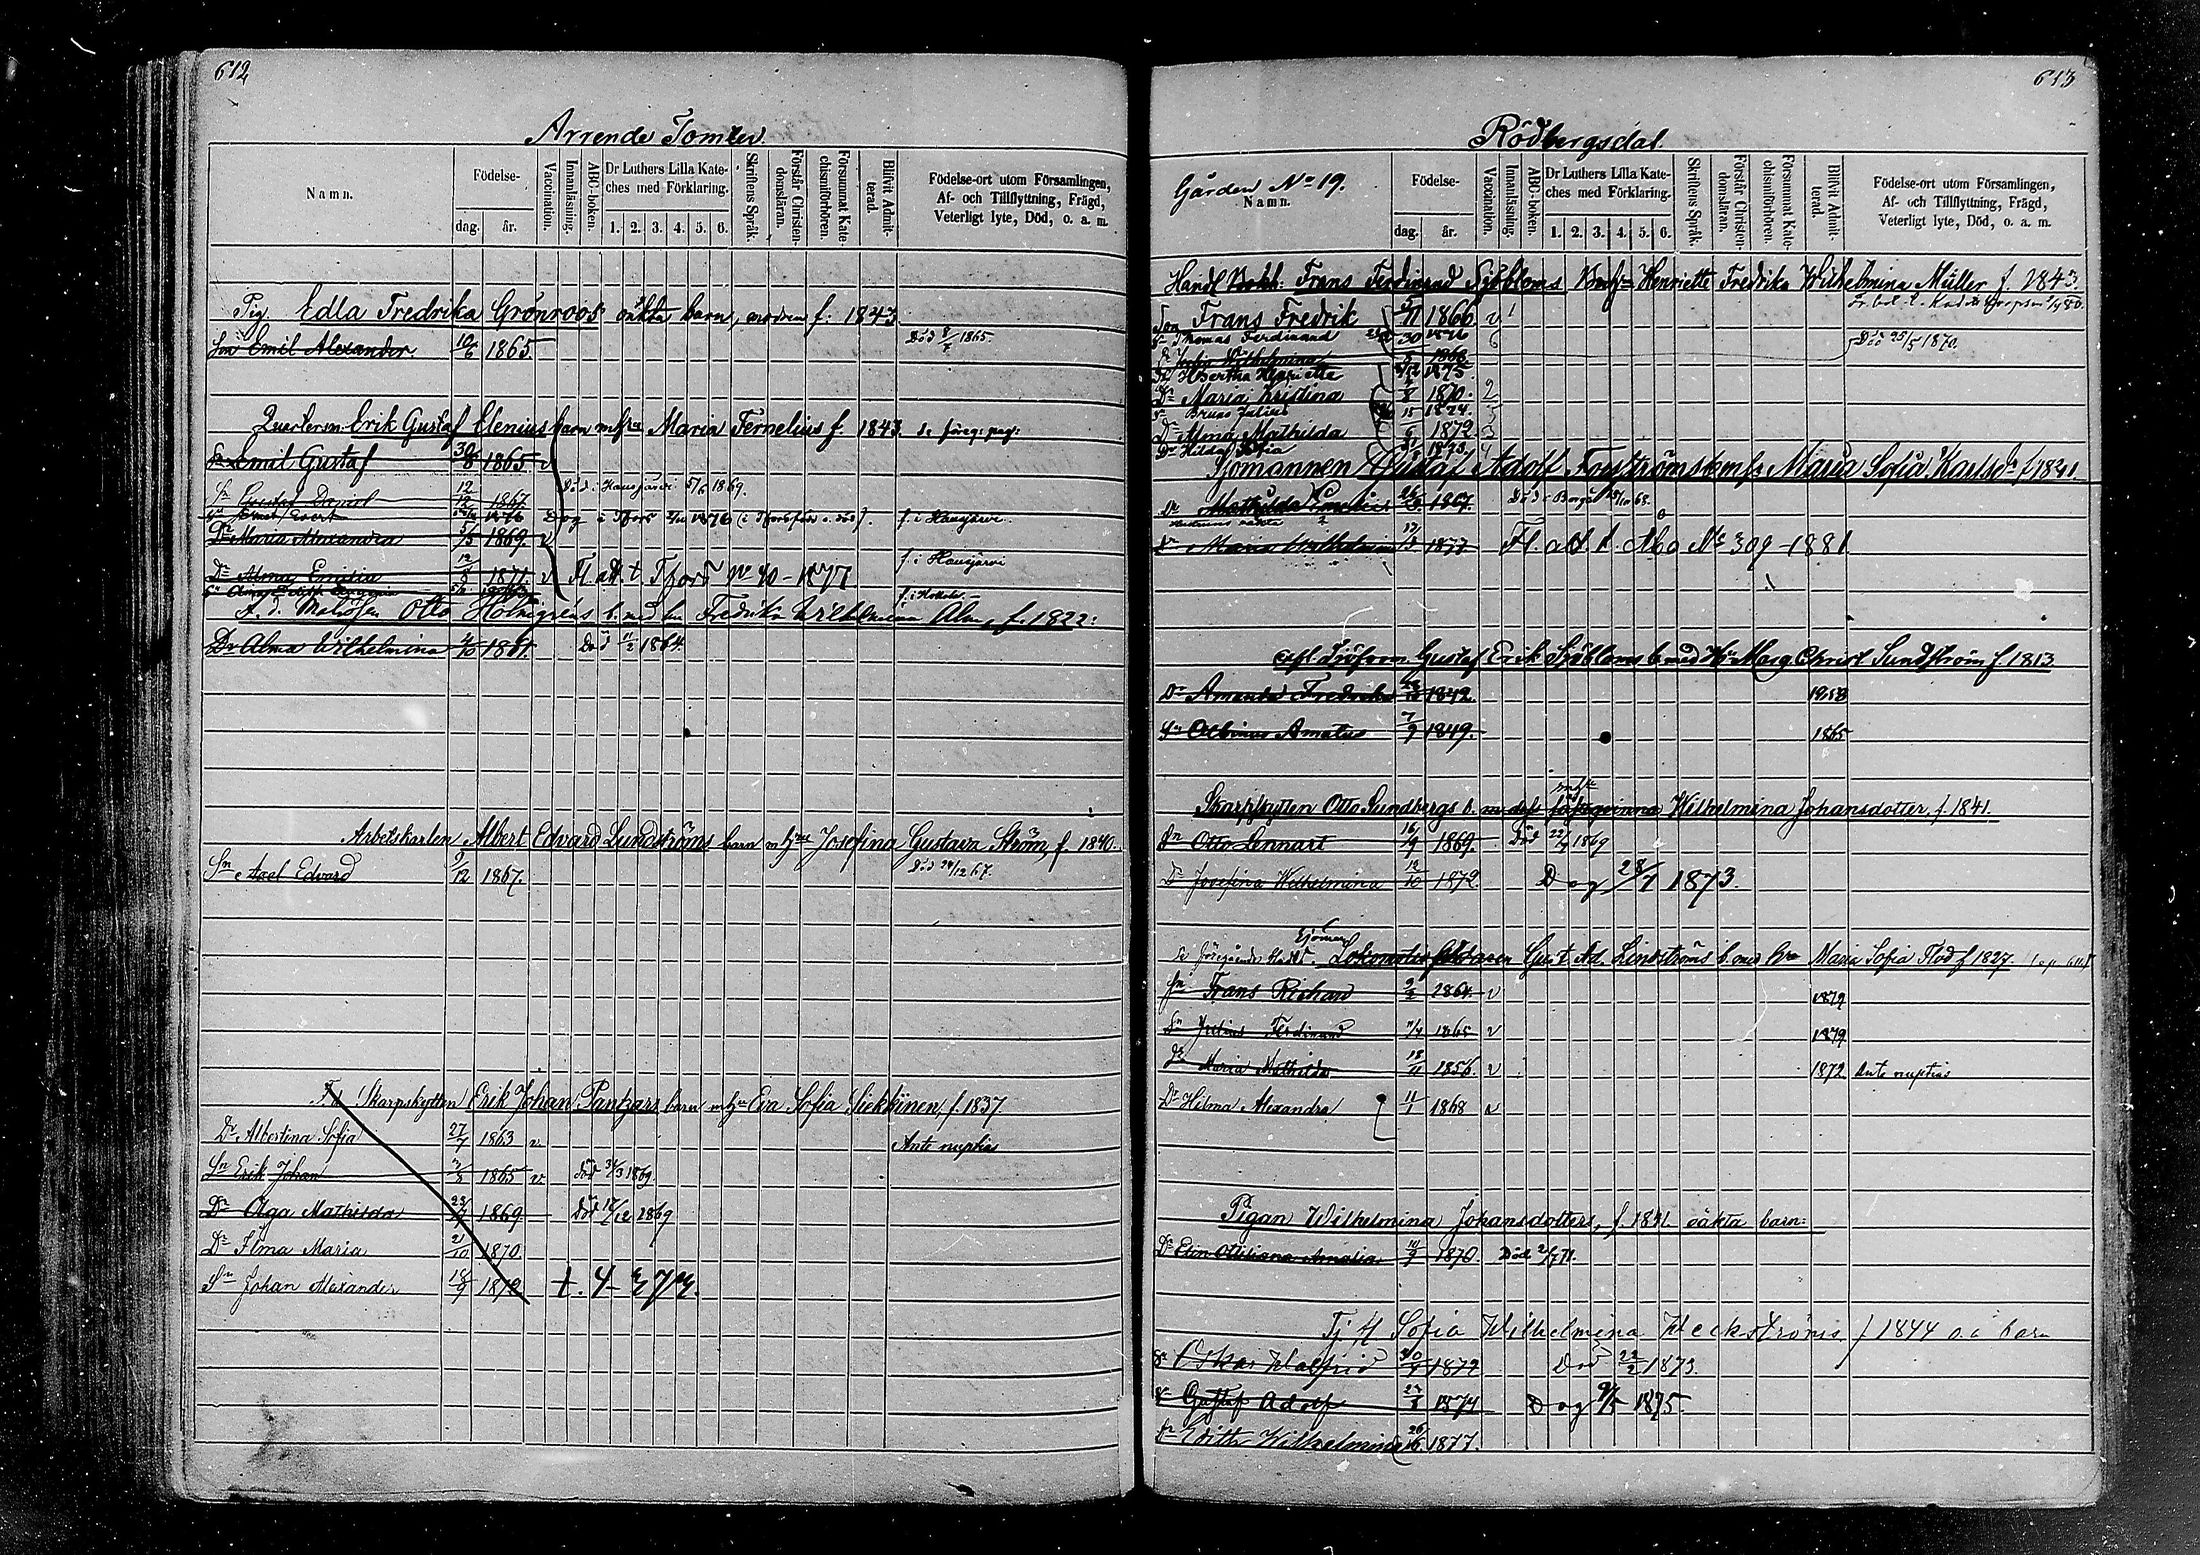 612
Arrende Tomter.
Namn.
Födelse-
dag. år.
Vaccination.
Innanläsning.
ABC-boken.
Dr Luthers Lilla Kate-
ches med Förklaring.
1. 2. 3. 4. 5. 6.
Skriftens Språk.
Förstår Christen-
domsläran.
Försummat Kate-
chismiförhören.
Blifvit Admit-
terad.
Födelse-ort utom Församlingen,
Af- och Tillflyttning, Frägd,
Veterligt lyte, Död, o. a. m.
Pig. Edla Fredrika Grönroos oäkta barn, modren f. 1843
Sn Emil Alexander 10/6 1865. Död 8/7 1865.
Erik Gustaf Elenius barn m hu Maria Fernelius f. 1843. se föreg: pag:
Sn Emil Gustaf 30/8 1865 v
Sn Daniel 12/12 1867. Död i Hausjärvi 5/6 1869.
Dog i Tfors 1876 f. i Hausjärvi.
Dr Maria Alexandra 1869. v
Dr Alma Emilia 12/8 1871. v Fl. att. t. Tfors No 40-1877 f. i Hausjärvi
Otto Holmgrens b. med hu Fredrika Wilhelmina Alm, f. 1822:
Dr Alma Wilhelmina 4/10 1861. Död 11/2 1864
Arbetskarlen Albert Edvard Lundströms barn m hu Josefina Gustava Ström, f. 1840.
Sn Axel Edvard 9/12 1867. Död 24/12 67.
Skarpskytten Erik Johan Pantzars barn m hu Eva Sofia Siekkinen f. 1837.
Dr Albertina Sofia 27/7 1863 v. Ante nuptias
Sn Erik Johan 1865 v död 31/3 1869.
Dr Olga Mathilda 1869. död 12/12 1869
Dr Ilma Maria 2/10 1870.
Sn Johan Alexander 18/9 1872
613
Rödbergsdal.
Gården No 19.
Namn.
Födelse-
dag. år.
Vaccination.
Innanläsning.
ABC-boken.
Dr Luthers Lilla Kate-
ches med Förklaring.
1. 2. 3. 4. 5. 6.
Skriftens Språk.
Förstår Christen-
domsläran.
Försummat Kate-
chismiförhören.
Blifvit Admit-
terad.
Födelse-ort utom Församlingen,
Af- och Tillflyttning, Frägd,
Veterligt lyte, Död, o. a. m.
Handl Bokh: Frans Ferdinand Sjöbloms Henriette Fredrika Wilhelmina Müller f. 1843.
Son Frans Fredrik 1866. v
Sn Thomas Ferdinand 30 1876 6
Dr Sofia Wilhelmina 1868 Död 25/5 1870.
Dr Hertha Henrietta 1875
Dr Maria Kristina 1870. 2
Sn Bruno Julius 15 1874. 5
Dr Alma Mathilda 1872. 3
Dr Hilda Sofia 1873. 4
Sjömannen Gustaf Adolf Maria Sofia Karlsdr f. 1841.
Dr Mathilda Emelie 1867. Död i Borgå 68.
Dr Maria Wilhelmina 1877 Fl. att. t. Åbo No 309-1881
Gustaf Erik Sjöbloms b med Hu Marg. Christ Sundström f. 1813
Dr Amanda Fredrika 1842. 1858
Sn Albinus Amatus 7/9 1849. 1865
Skarpskytten Otto Sundbergs b. Wilhelmina Johansdotter, f. 1841.
Sn Otto Lennart 16/9 1869. Död 22/9 1869
Dr Josefina Wilhelmina 12/10 1872. Dog 28/7 1873.
Gust. Ad. Lindströms b. med hu Maria Sofia Flod f. 1827.
Sn Frans Richard 9/2 1864. v 1879
Sn Julius Ferdinand 1865 v 1879
Dr Maria Mathilda 18/11 1856. v 1872 Ante nuptias
Dr Hilma Alexandra 11/1 1868 v
Pigan Wilhelmina Johansdotters, f. 1841. oäkta barn:
Dr Amalia 11/9 1870. Död 2/7 71.
Tj q Sofia Wilhelmina Weckströms f 1844 o.ä barn
Sn Oskar Walfrid 30/9 1872 Död 22/2 1873.
Sn Gustaf Adolf 1874 Dog 9/5 1875.
Dr Edith Wilhelmina 26/6 1877.